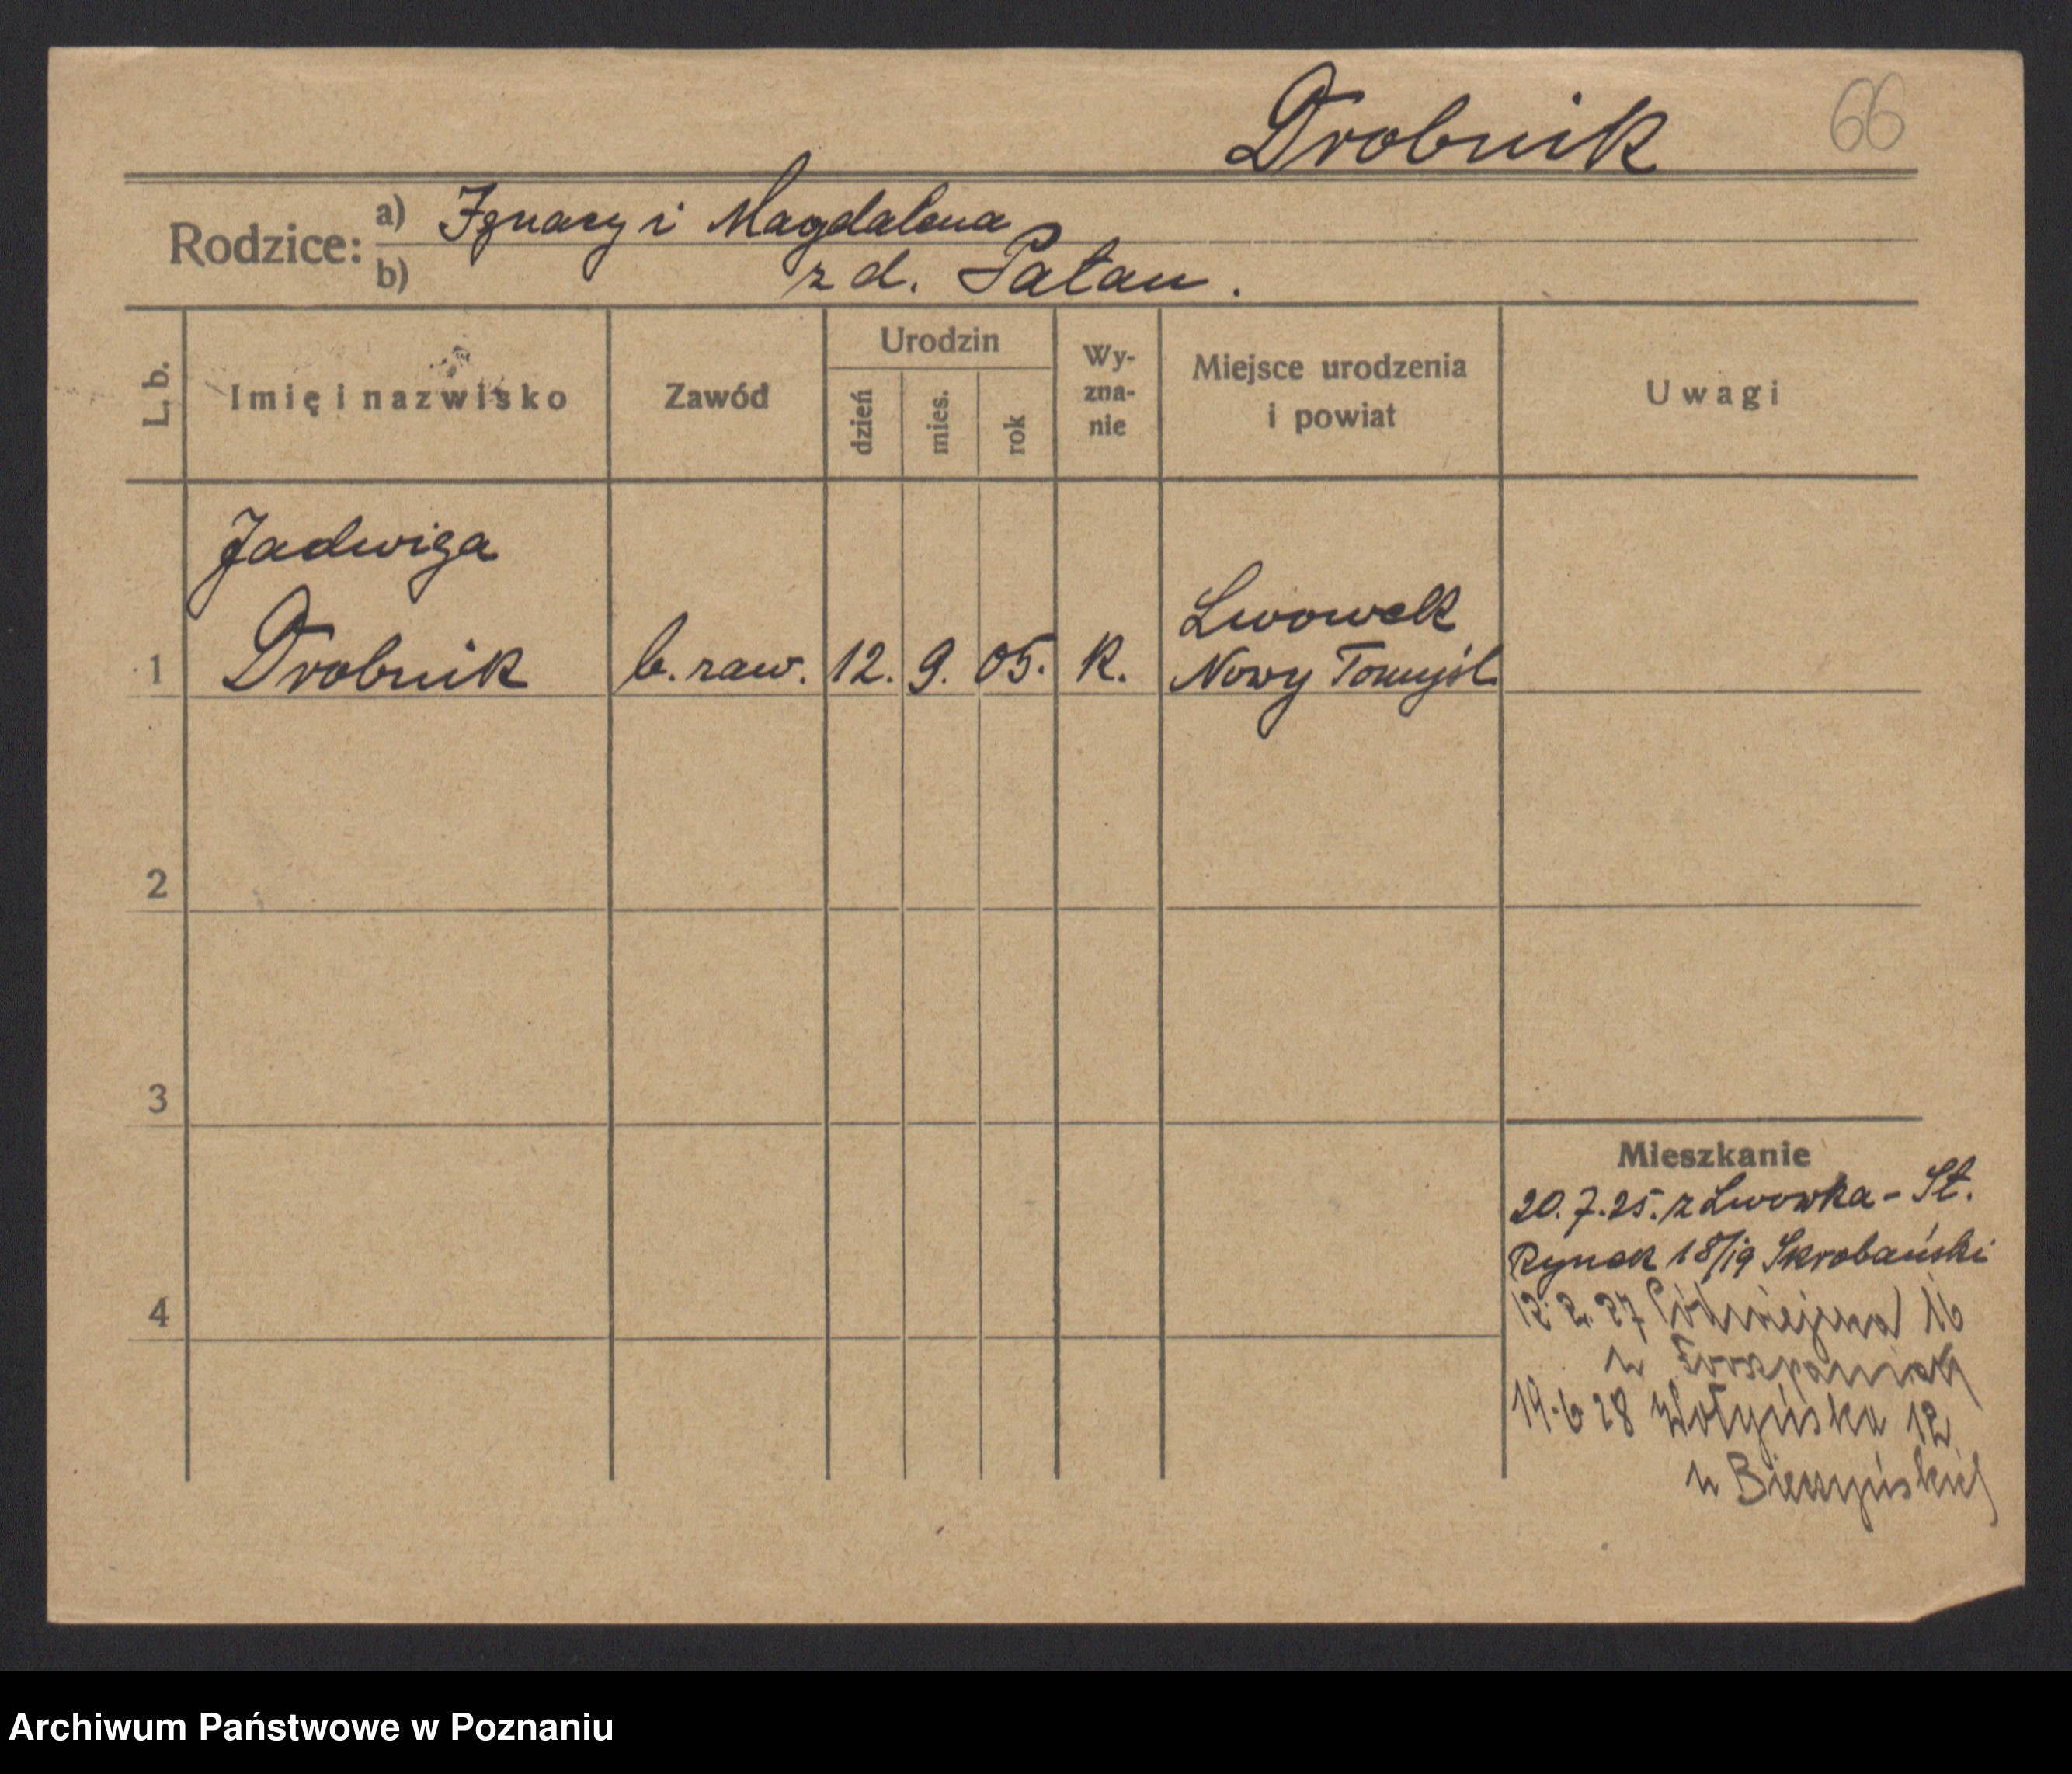 Drobnik 66
Rodzice: a) Ignacy i Magdalena
b) z d. Patan.
L. b. Imię i nazwisko Zawód Urodzin dzień mies. rok Wy-zna-nie Miejsce urodzenia i powiat Uwagi
Jadwiga
Lwowek
1 Drobnik b. zaw. 12. 9. 05. K. Nowy Tomyśl
2
3
Mieszkanie
20.7.25. z Lwowka - St.
Rynek 18/19 Skrobański
4
12.2.27 Półwiejska 16
u
19.6 28 Wołyńska 12
u Bieczyńskiej
Archiwum Państwowe w Poznaniu